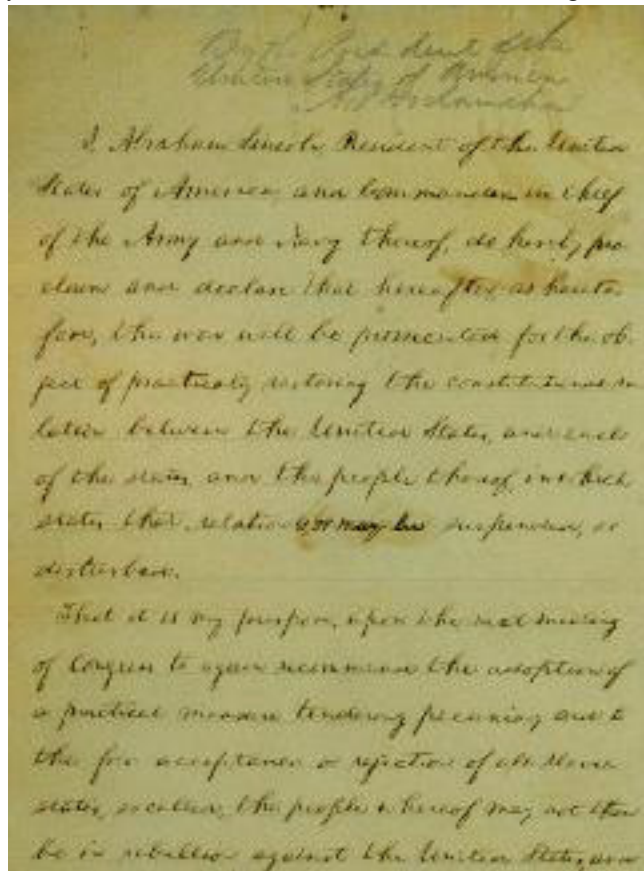 By the President of the
United States of America
A Proclamation
I, Abraham Lincoln, President of the United
States of America, and Commander-in-chief
of the Army and Navy thereof, do hereby pro
claim and declare that hereafter, as hereto-
fore, the war will be prosecuted for the ob-
ject of practically restoring the constitutional re-
lation between the United States, and each
of the states, and the people thereof, in which
states that relation is, or may be suspended, or
disturbed.
That it is my purpose, upon the next meeting
of Congress to again recommend the adoption of
a practical measure tendering pecuniary aid to
the free acceptance or rejection of all slave-
states, so called, the people whereof may not then
be in rebellion against the United States, and